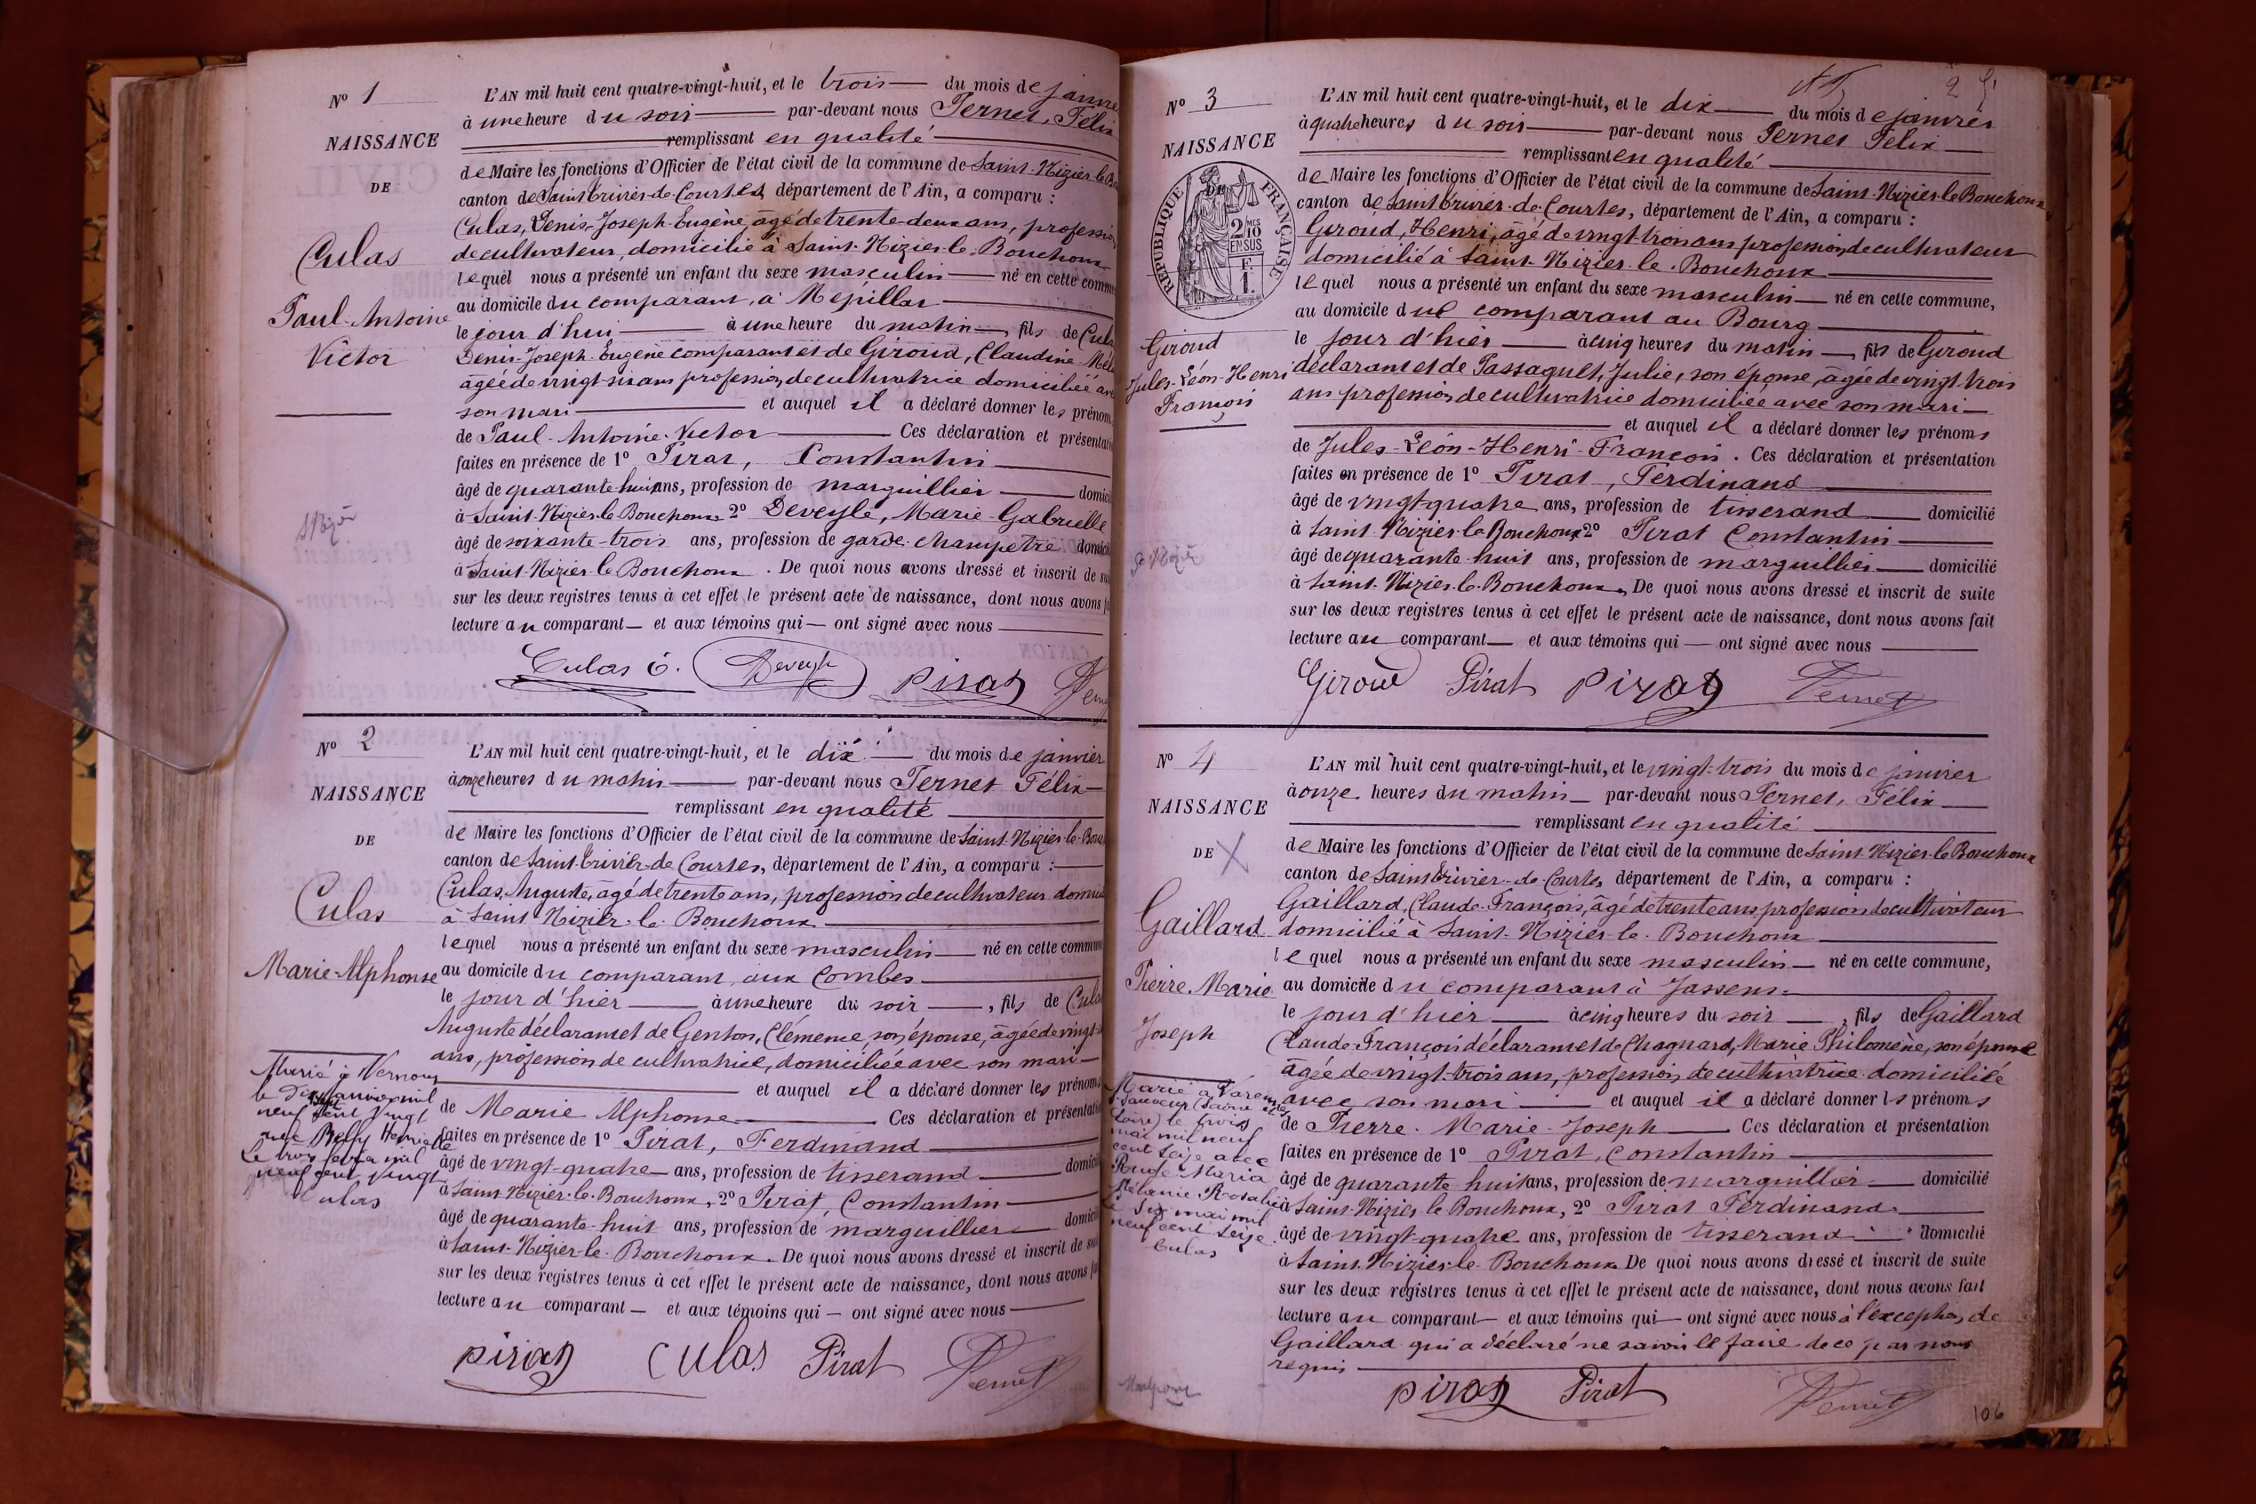 N° 1
NAISSANCE
DE
Culas
Paul-Antoine
Victor
L'AN mil huit cent quatre-vingt-huit, et le trois du mois de janvie
à une heure du soir par-devant nous Pernet, Félix
remplissant en qualité
de Maire les fonctions d'Officier de l'état civil de la commune de Saint-Nizier-le-Bo
canton de Saint Trivier-de-Courtes, département de l'Ain, a comparu :
Culas, Denis-Joseph-Eugène, âgé de trente-deux ans, profession
de cultivateur, domicilié à Saint-Nizier-le-Bouchoux
lequel nous a présenté un enfant du sexe masculin né en cette commu
au domicile du comparant, à Mépillat
le jour d'hui à une heure du matin, fils de Cula
Denis-Joseph-Eugène comparant et de Giroud, Claudine
âgée de vingt-six ans profession de cultivatrice domiciliée ave
son mari et auquel il a déclaré donner les prénom
de Paul-Antoine-Victor Ces déclaration et présentatio
faites en présence de 1° Pirat, Constantin
âgé de quarante huit ans, profession de marguillier domici
à Saint-Nizier-le-Bouchoux 2° Deveyle, Marie-Gabrielle
âgé de soixante-trois ans, profession de garde-champêtre domici
à Saint-Nizier-le-Bouchoux. De quoi nous avons dressé et inscrit de su
sur les deux registres tenus à cet effet le présent acte de naissance, dont nous avons f
lecture au comparant et aux témoins qui ont signé avec nous
Culas é. Deveyle Pirat Pernet
St Nizier
N° 2
NAISSANCE
DE
Culas
Marie-Alphonse
L'AN mil huit cent quatre-vingt-huit, et le dix du mois de janvier
à onze heures du matin par-devant nous Pernet Félix
remplissant en qualité
de Maire les fonctions d'Officier de l'état civil de la commune de Saint-Nizier-le-Bou
canton de Saint-Trivier-de Courtes, département de l'Ain, a comparu :
Culas, Auguste, âgé de trente ans, profession de cultivateur domici
à Saint Nizier-le-Bouchoux
lequel nous a présenté un enfant du sexe masculin né en cette commun
au domicile du comparant, aux Combes
le jour d'hier à une heure du soir, fils de Cula
Auguste déclarant et de Genton, Clémence, son épouse, âgée de vingt
ans, profession de cultivatrice, domiciliée avec son mari
et auquel il a déclaré donner les prénoms
de Marie Alphonse Ces déclaration et présentatio
faites en présence de 1° Pirat, Ferdinand
âgé de vingt-quatre ans, profession de tisserand domici
à Saint-Nizier-le-Bouchoux, 2° Pirat, Constantin
âgé de quarante-huit ans, profession de marguillier domici
à Saint-Nizier-le-Bouchoux. De quoi nous avons dressé et inscrit de su
sur les deux registres tenus à cet effet le présent acte de naissance, dont nous avons fa
lecture au comparant et aux témoins qui ont signé avec nous
Pirat Culas Pirat Pernet
Marié à Vernoux
le dix janvier mil
neuf cent vingt
avec Henriette
Le trois février mil
neuf cent vingt
Culas
2
N° 3
NAISSANCE
DE
RÉPUBLIQUE FRANÇAISE
2 MES
10
EN SUS
F.
1.
Giroud
Jules-Léon-Henri
François
L'AN mil huit cent quatre-vingt-huit, et le dix du mois de janvier
à quatre heures du soir par-devant nous Pernet Félix
remplissant en qualité
de Maire les fonctions d'Officier de l'état civil de la commune de Saint-Nizier-le Bouchoux
canton de Saint Trivier-de-Courtes, département de l'Ain, a comparu :
Giroud, Henri, âgé de vingt-trois ans profession de cultivateur
domicilié à Saint-Nizier-le-Bouchoux
lequel nous a présenté un enfant du sexe masculin né en cette commune,
au domicile du comparant au Bourg
le jour d'hier à cinq heures du matin, fils de Giroud
déclarant et de Passaquet, Julie, son épouse, âgée de vingt-trois
ans profession de cultivatrice domiciliée avec son mari
et auquel il a déclaré donner les prénoms
de Jules-Léon-Henri-François. Ces déclaration et présentation
faites en présence de 1° Pirat, Ferdinand
âgé de vingt-quatre ans, profession de tisserand domicilié
à Saint-Nizier-le-Bouchoux 2° Pirat Constantin
âgé de quarante-huit ans, profession de marguillier domicilié
à Saint-Nizier-le-Bouchoux. De quoi nous avons dressé et inscrit de suite
sur les deux registres tenus à cet effet le présent acte de naissance, dont nous avons fait
lecture au comparant et aux témoins qui ont signé avec nous
Giroud Pirat Pirat Pernet
St Nizier
N° 4
NAISSANCE
DE
Gaillard
Pierre-Marie
Joseph
L'AN mil huit cent quatre-vingt-huit, et le vingt-trois du mois de janvier
à onze heures du matin par-devant nous Pernet, Félix
remplissant en qualité
de Maire les fonctions d'Officier de l'état civil de la commune de Saint-Nizier-le Bouchoux
canton de Saint Trivier-de-Courtes, département de l'Ain, a comparu :
Gaillard, Claude-François, âgé de trente ans profession de cultivateur
domicilié à Saint-Nizier-le-Bouchoux
lequel nous a présenté un enfant du sexe masculin né en cette commune,
au domicile du comparant à Jassens
le jour d'hier à cinq heures du soir, fils de Gaillard
Claude-François déclarant et de Chagnard, Marie Philomène, son épouse
âgée de vingt-trois ans, profession de cultivatrice domiciliée
avec son mari et auquel il a déclaré donner ls prénoms
de Pierre-Marie-Joseph Ces déclaration et présentation
faites en présence de 1° Pirat, Constantin
âgé de quarante huit ans, profession de marguillier domicilié
à Saint-Nizier le Bouchoux, 2° Pirat Ferdinand
âgé de vingt-quatre ans, profession de tisserand domicilié
à Saint-Nizier-le-Bouchoux De quoi nous avons dressé et inscrit de suite
sur les deux registres tenus à cet effet le présent acte de naissance, dont nous avons fait
lecture au comparant et aux témoins qui ont signé avec nous à l'exception de
Gaillard qui a déclaré ne savoir le faire de ce par nous
requis
Pirat Pirat Pernet
Marié à Varennes
St Sauveur (Saône et
Loire) le trois
mai mil neuf
cent seize avec
Maria
Mélanie Rosalie
Le six mai mil
neuf cent seize
Culas
106